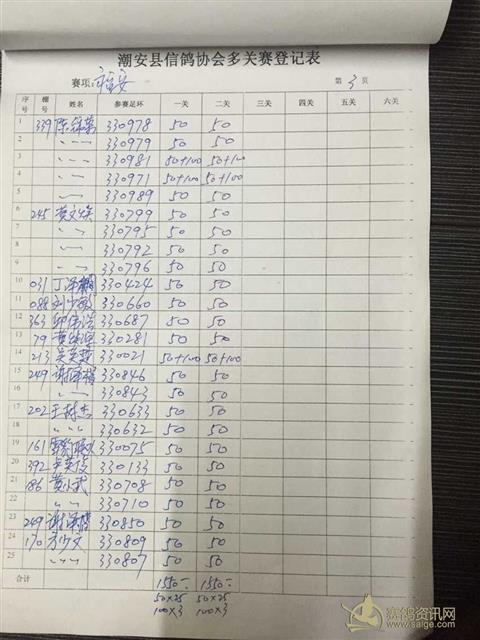 潮安县信鸽协会多关赛登记表
赛项: 福安 第 3 页
序号 棚号 姓名 参赛足环 一关 二关 三关 四关 五关 六关
1 339 陈锦荣 330978 50 50
2 330979 50 50
3 330981 50+100 50+100
4 330971 50+100 50+100
5 330989 50 50
6 245 黄文焕 330799 50 50
7 330795 50 50
8 330792 50 50
9 330796 50 50
10 031 330424 50 50
11 088 330660 50 50
12 363 330687 50 50
13 79 330281 50 50
14 213 330021 50+100 50+100
15 249 330846 50 50
16 330843 50 50
17 202 王树杰 330633 50 50
18 330632 50 50
19 161 330075 50 50
20 392 330133 50 50
21 186 黄小武 330708 50 50
22 330710 50 50
23 249 330850 50 50
24 170 方少文 330809 50 50
25 330807 50 50
合计 1550- 1550-
50×25 50×25
100×3 100×3
赛鸽资讯网
www.saige.com